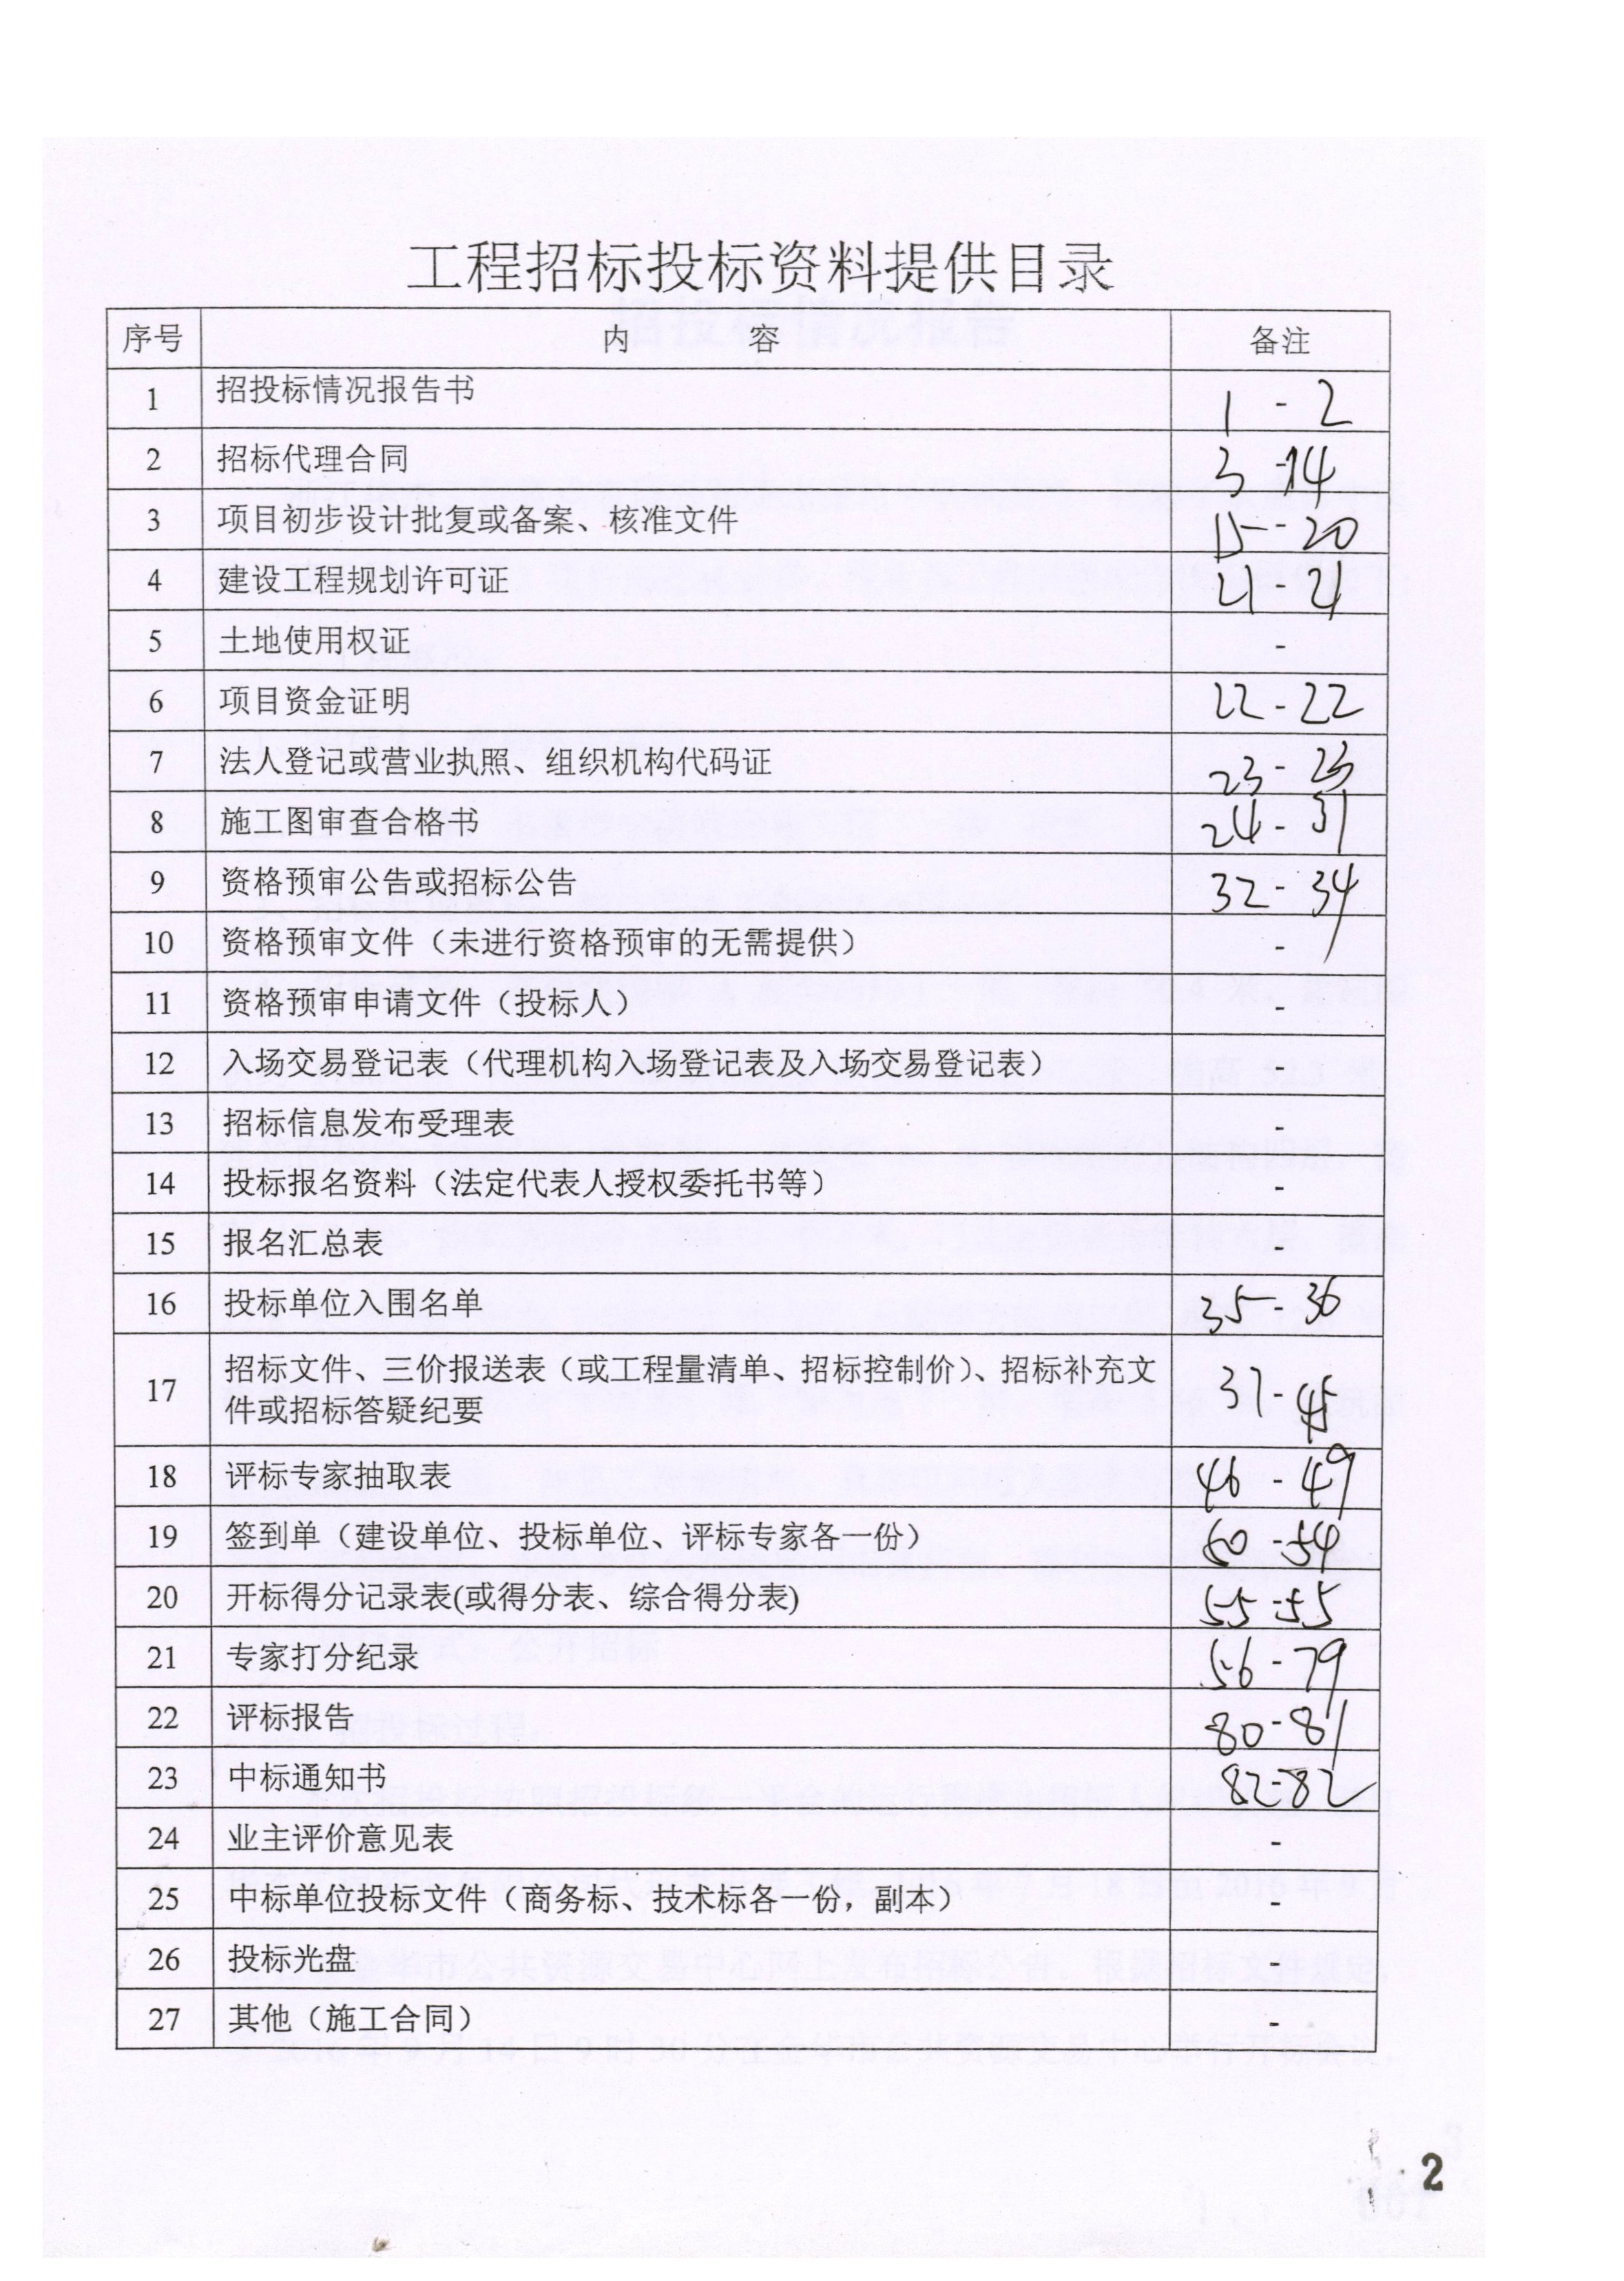 工程招标投标资料提供目录
序号 内 容 备注
1 招投标情况报告书 1 - 2
2 招标代理合同 3 - 14
3 项目初步设计批复或备案、核准文件 15 - 20
4 建设工程规划许可证 21 - 21
5 土地使用权证 -
6 项目资金证明 22 - 22
7 法人登记或营业执照、组织机构代码证 23 - 23
8 施工图审查合格书 24 - 31
9 资格预审公告或招标公告 32 - 34
10 资格预审文件（未进行资格预审的无需提供） -
11 资格预审申请文件（投标人） -
12 入场交易登记表（代理机构入场登记表及入场交易登记表） -
13 招标信息发布受理表 -
14 投标报名资料（法定代表人授权委托书等） -
15 报名汇总表 -
16 投标单位入围名单 35 - 36
17 招标文件、三价报送表（或工程量清单、招标控制价）、招标补充文 37 - 45
件或招标答疑纪要
18 评标专家抽取表 46 - 49
19 签到单（建设单位、投标单位、评标专家各一份） 50 - 54
20 开标得分记录表(或得分表、综合得分表) 55 - 55
21 专家打分纪录 56 - 79
22 评标报告 80 - 81
23 中标通知书 82 - 82
24 业主评价意见表 -
25 中标单位投标文件（商务标、技术标各一份，副本） -
26 投标光盘 -
27 其他（施工合同） -
2